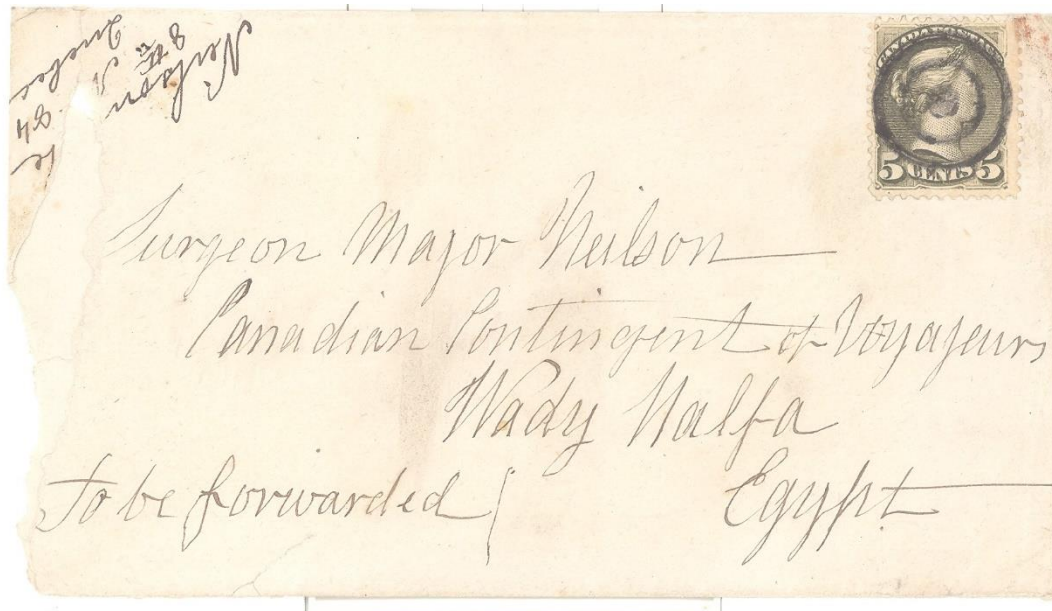 Neilson
8
Quebec
84
CANADA POSTAGE
5 CENTS 5
Surgeon Major Neilson
Canadian Contingent of Voyageurs
Wady Halfa
To be forwarded Egypt